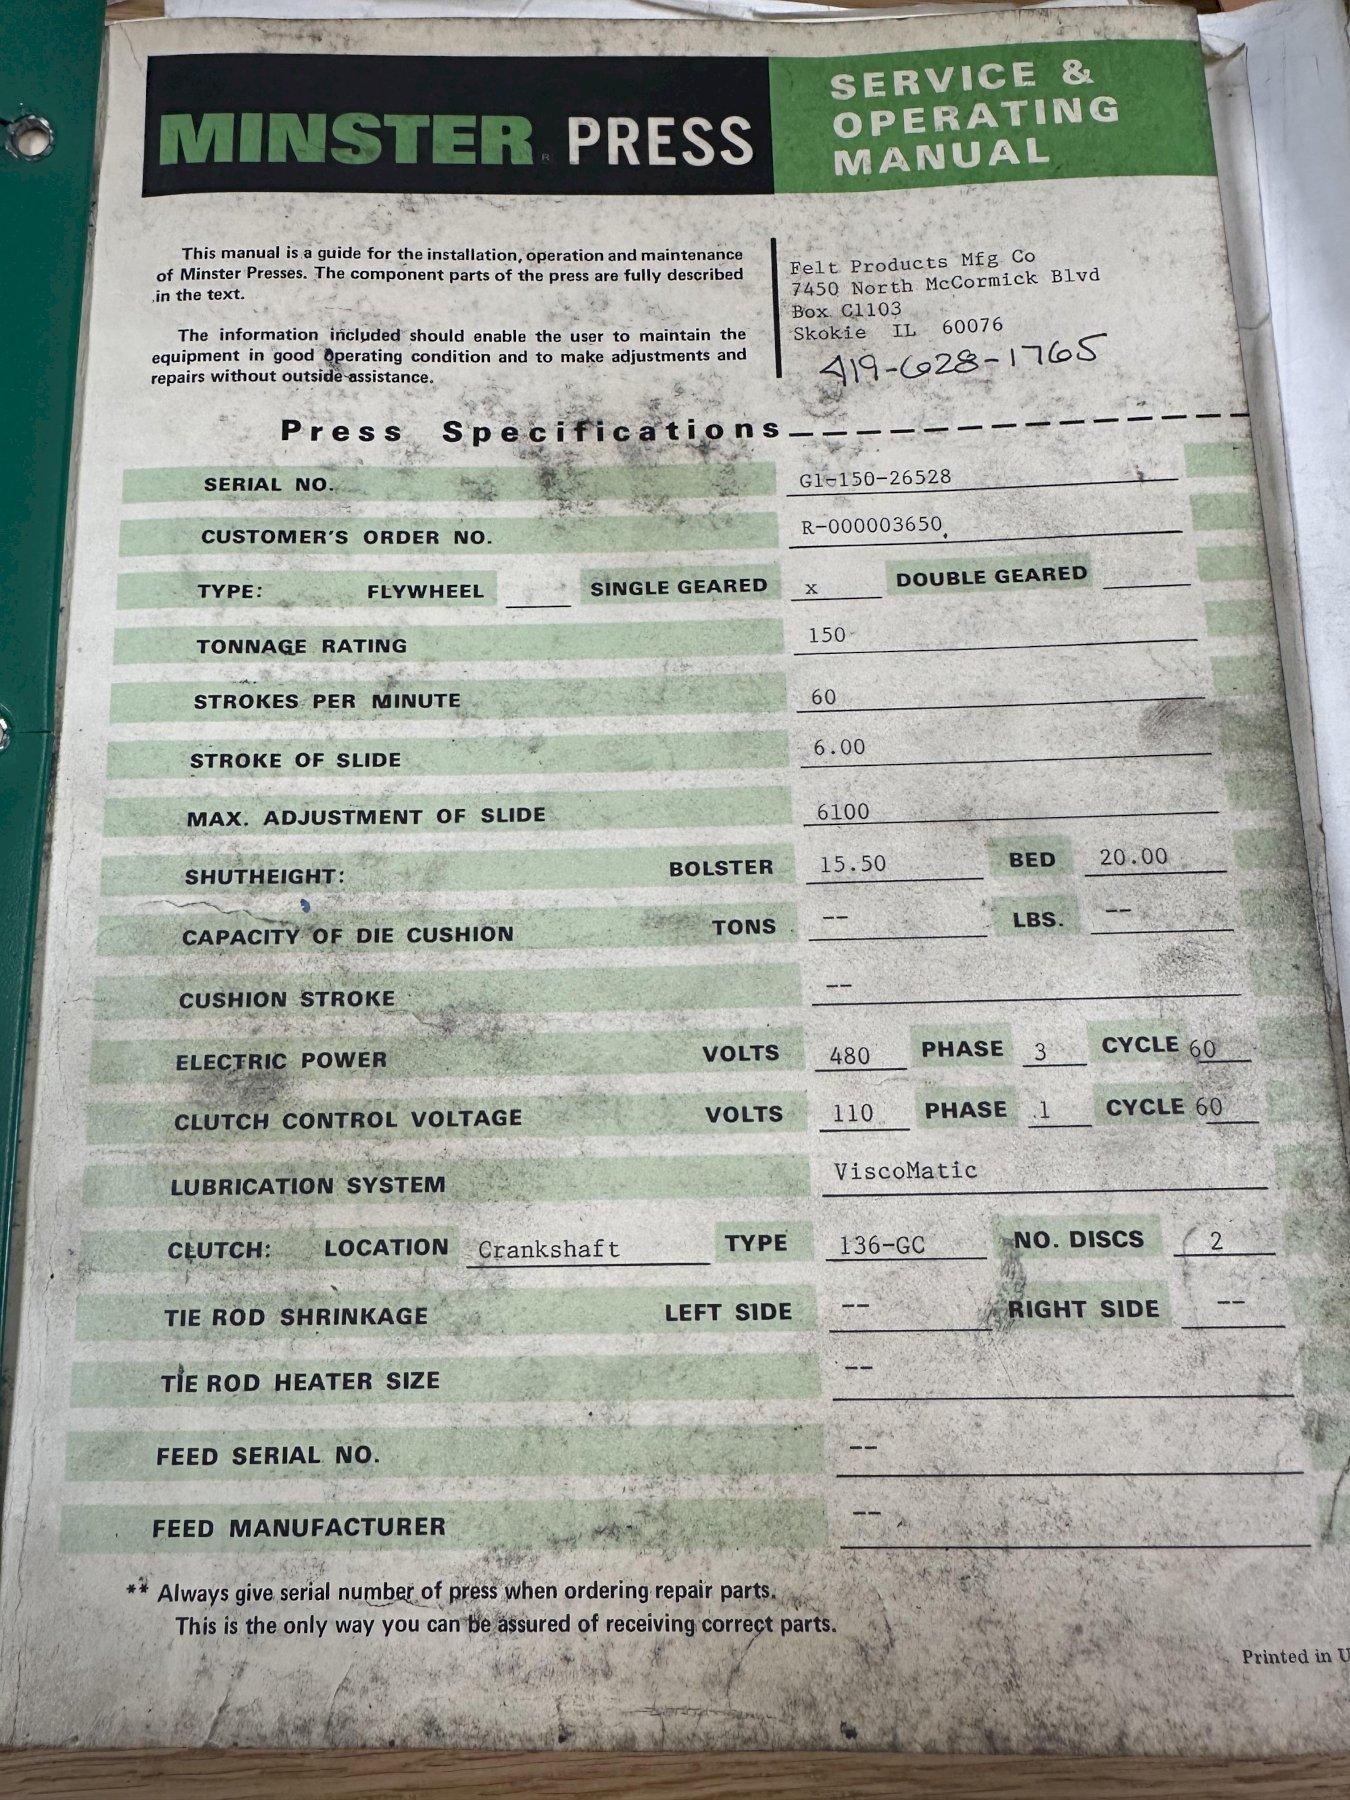 MINSTER® PRESS
SERVICE &
OPERATING
MANUAL
This manual is a guide for the installation, operation and maintenance
of Minster Presses. The component parts of the press are fully described
in the text.
The information included should enable the user to maintain the
equipment in good operating condition and to make adjustments and
repairs without outside assistance.
Felt Products Mfg Co
7450 North McCormick Blvd
Box C1103
Skokie IL 60076
419-628-1765
Press Specifications
SERIAL NO. G1-150-26528
CUSTOMER'S ORDER NO. R-000003650
TYPE: FLYWHEEL SINGLE GEARED x DOUBLE GEARED
TONNAGE RATING 150
STROKES PER MINUTE 60
STROKE OF SLIDE 6.00
MAX. ADJUSTMENT OF SLIDE 6100
SHUTHEIGHT: BOLSTER 15.50 BED 20.00
CAPACITY OF DIE CUSHION TONS -- LBS. --
CUSHION STROKE --
ELECTRIC POWER VOLTS 480 PHASE 3 CYCLE 60
CLUTCH CONTROL VOLTAGE VOLTS 110 PHASE 1 CYCLE 60
LUBRICATION SYSTEM ViscoMatic
CLUTCH: LOCATION Crankshaft TYPE 136-GC NO. DISCS 2
TIE ROD SHRINKAGE LEFT SIDE -- RIGHT SIDE --
TIE ROD HEATER SIZE --
FEED SERIAL NO. --
FEED MANUFACTURER --
** Always give serial number of press when ordering repair parts.
This is the only way you can be assured of receiving correct parts.
Printed in U